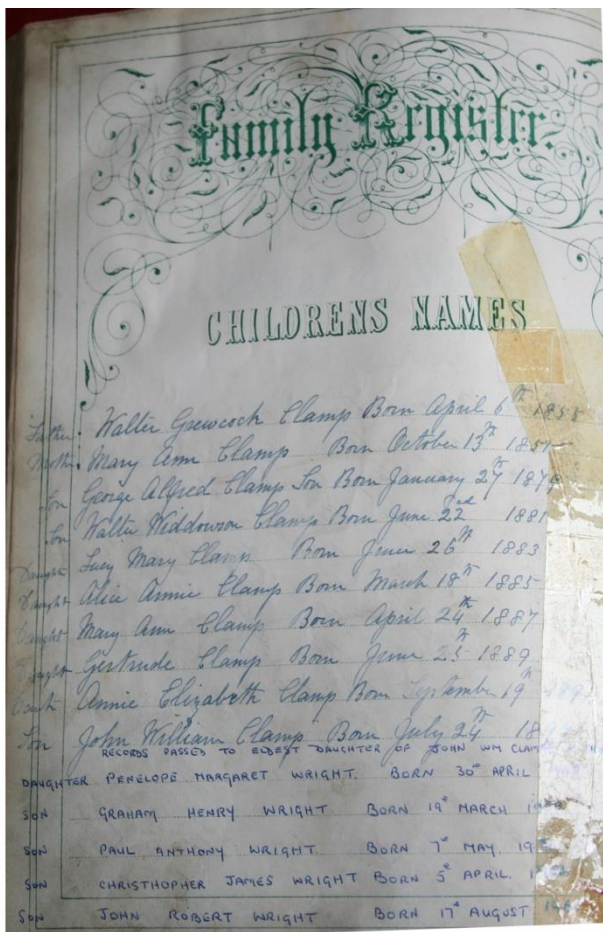 Family Register.
CHILDRENS NAMES
Father Walter Grewcock Clamp Born April 6th 1855
Mother Mary Ann Clamp Born October 13th
Son George Alfred Clamp Son Born January 27th 1879
Son Walter Widdowson Clamp Born June 22nd 1881
Daught Lucy Mary Clamp Born June 26th 1883
Daught Alice Annie Clamp Born March 18th 1885
Daught Mary Ann Clamp Born April 24th 1887
Daught Gertrude Clamp Born June 25 1889
Annie Elizabeth Clamp Born September 19th
Son John William Clamp Born July 24th 18
RECORDS PASSED TO ELDEST DAUGHTER OF JOHN WM CLAMP
DAUGHTER PENELOPE MARGARET WRIGHT. BORN 30th APRIL
SON GRAHAM HENRY WRIGHT BORN 19th MARCH
SON PAUL ANTHONY WRIGHT. BORN 7th MAY. 19
SON CHRISTHOPHER JAMES WRIGHT BORN 5th APRIL.
SON JOHN ROBERT WRIGHT BORN 17th AUGUST